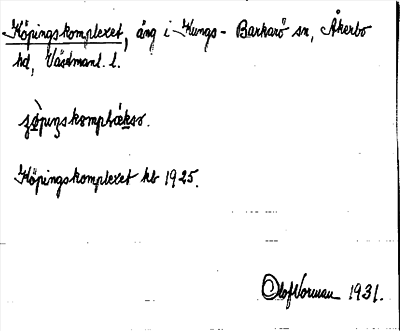 Köpingskomplexet, äng i Kungs-Barkarö sn, Åkerbo
hd, Västmanl. l.
Köpingskomplexet kb 1925.
Olof Norman 1931.